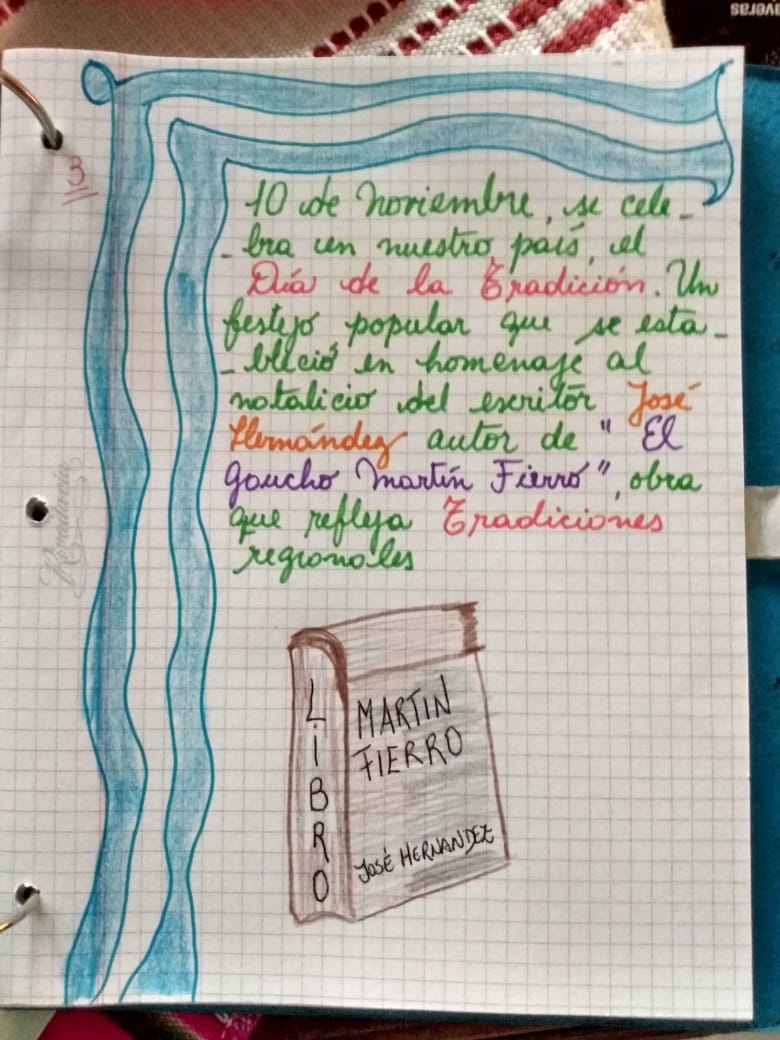 averas
3
10 de noviembre, se cele-
-bra en nuestro país, el
Día de la Tradición. Un
festejo popular que se esta-
-bleció en homenaje al
natalicio del escritor José
Hernández autor de " El
gaucho Martín Fierro", obra
que refleja Tradiciones
regionales
Rivadavia
LIBRO
MARTIN
FIERRO
JOSÉ HERNANDEZ